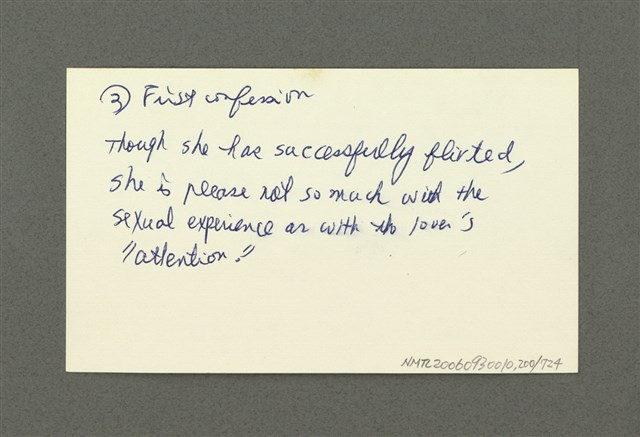 ③ First confession
Though she has successfully flirted,
she is please not so much with the
sexual experience as with the lover's
"attention."
NMTL20060930010,200/724